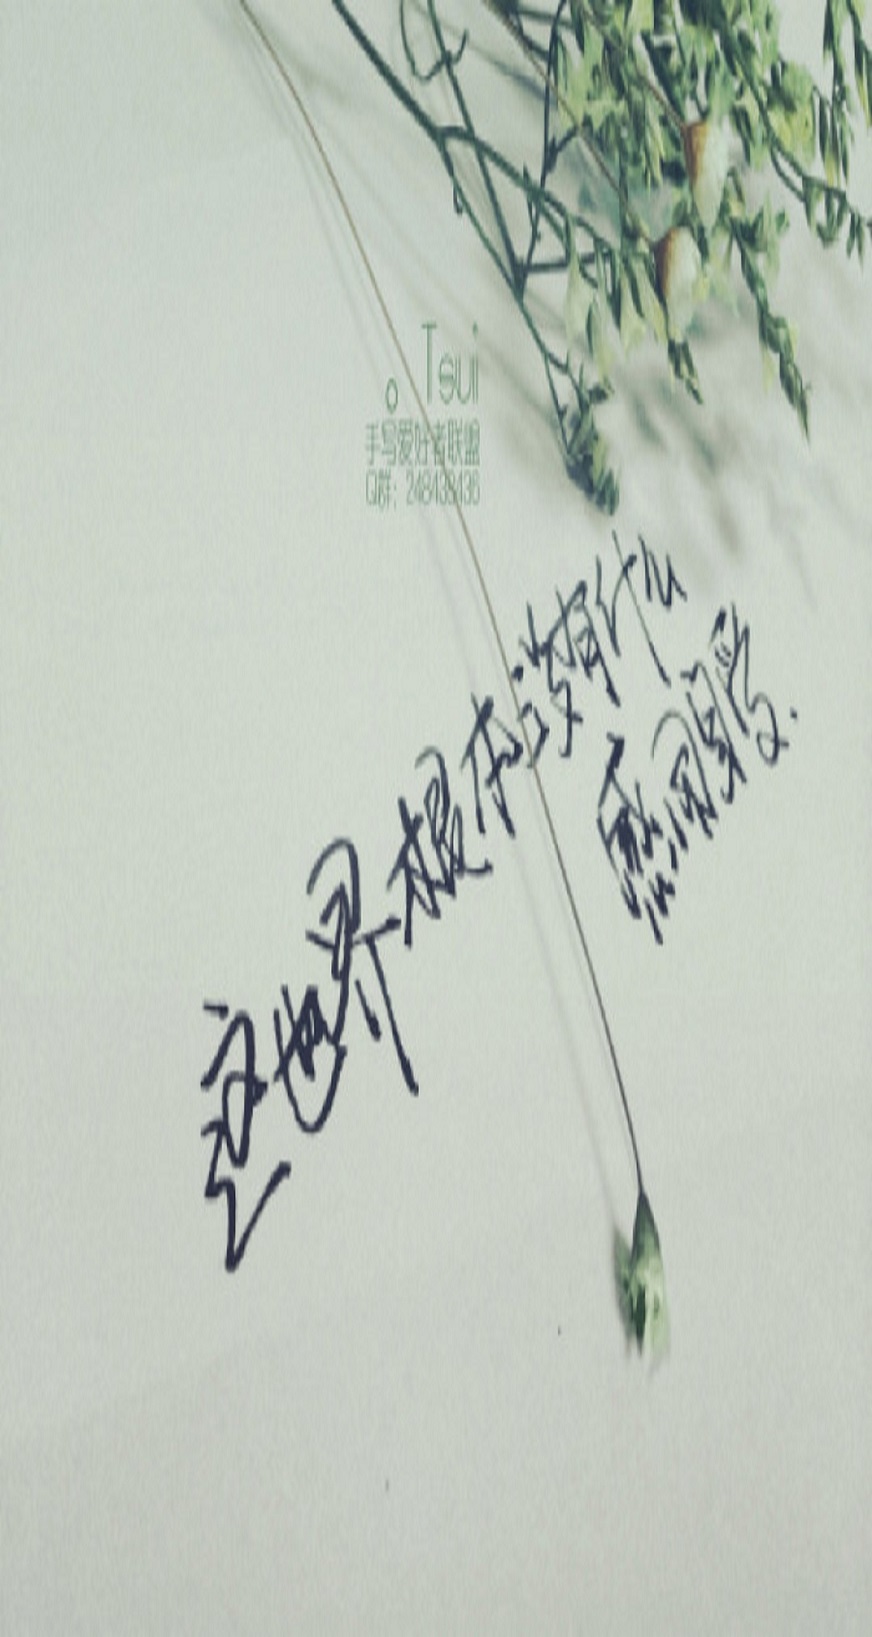 。Tsui
手写爱好者联盟
Q群：248439436
这世界根本没有什么
感同身受.